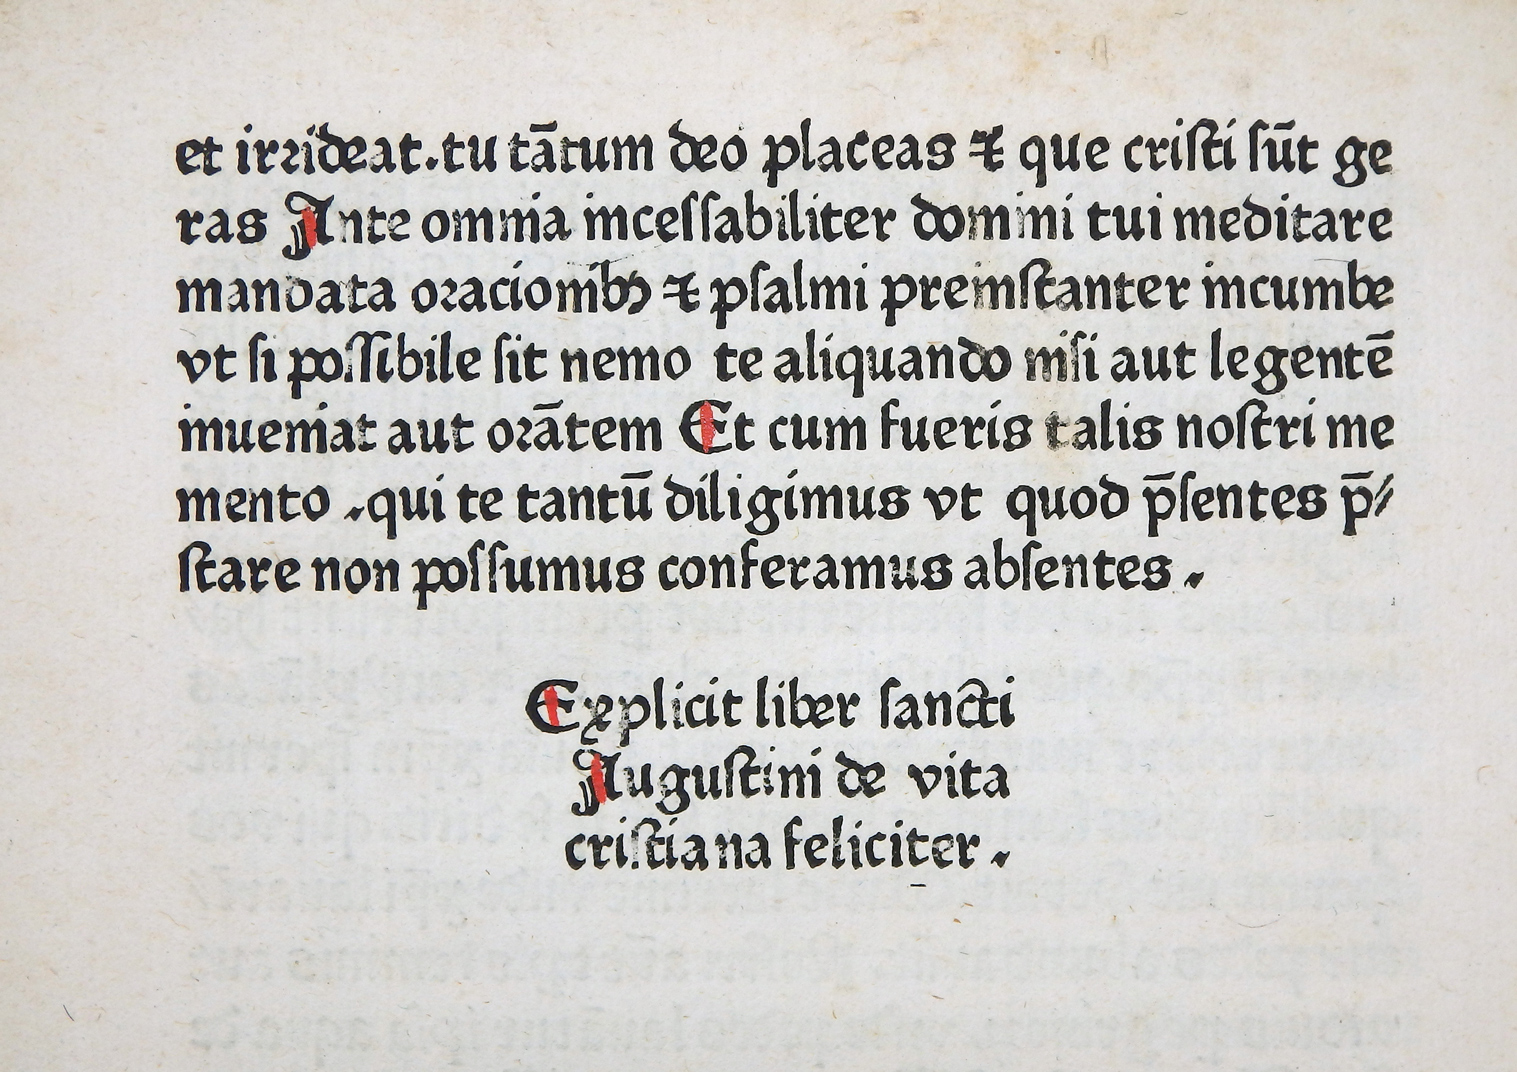 et irrideat. tu tātum deo placeas ⁊ que cristi sūt ge
ras Ante omnia incessabiliter domini tui meditare
mandata oracionibꝫ ⁊ psalmi preinstanter incumbe
vt si possibile sit nemo te aliquando nisi aut legentē
inueniat aut orātem Et cum fueris talis nostri me
mento . qui te tantū diligimus vt quod p̄sentes p̄⸗
stare non possumus conferamus absentes .
Explicit liber sancti
Augustini de vita
cristiana feliciter .